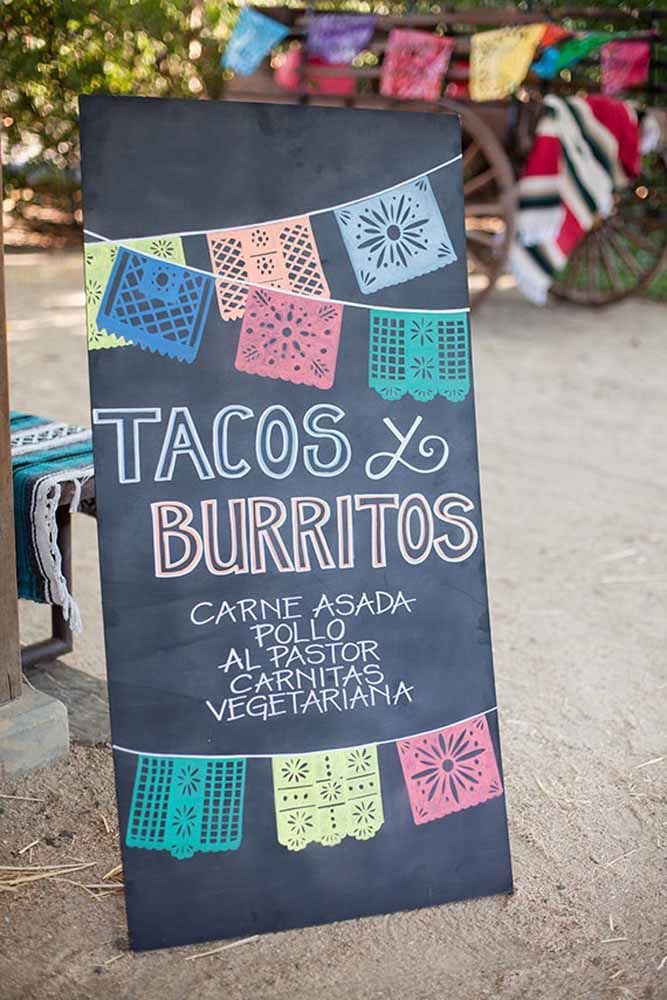 TACOS y
BURRITOS
CARNE ASADA
POLLO
AL PASTOR
CARNITAS
VEGETARIANA